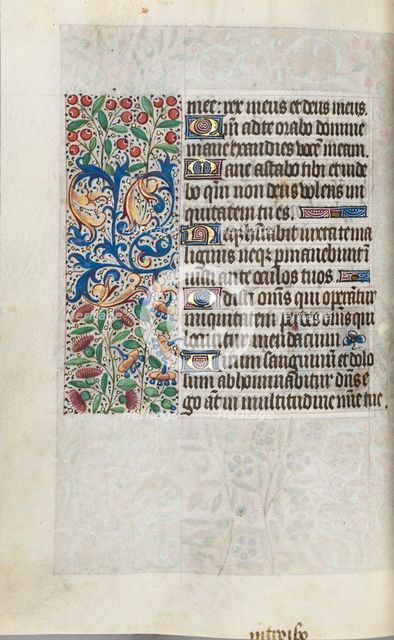 mee: rex meus et deus meus.
Qm̄ ad te orabo domine
mane exaudies vocē meam.
Mane astabo tibi et vide
bo qm̄ non deus volens ini
quitatem tu es.
Neqz hītabit iuxta te ma
lignus neqz p̄manebunt
ante oculos tuos
Odisti om̄s qui operātur
iniquitatem perdes om̄s qui
locūtur mendacium
Virum sanguinum et dolo
sum abhominabitur dn̄s e
go aūt in multitudine mīe tue.